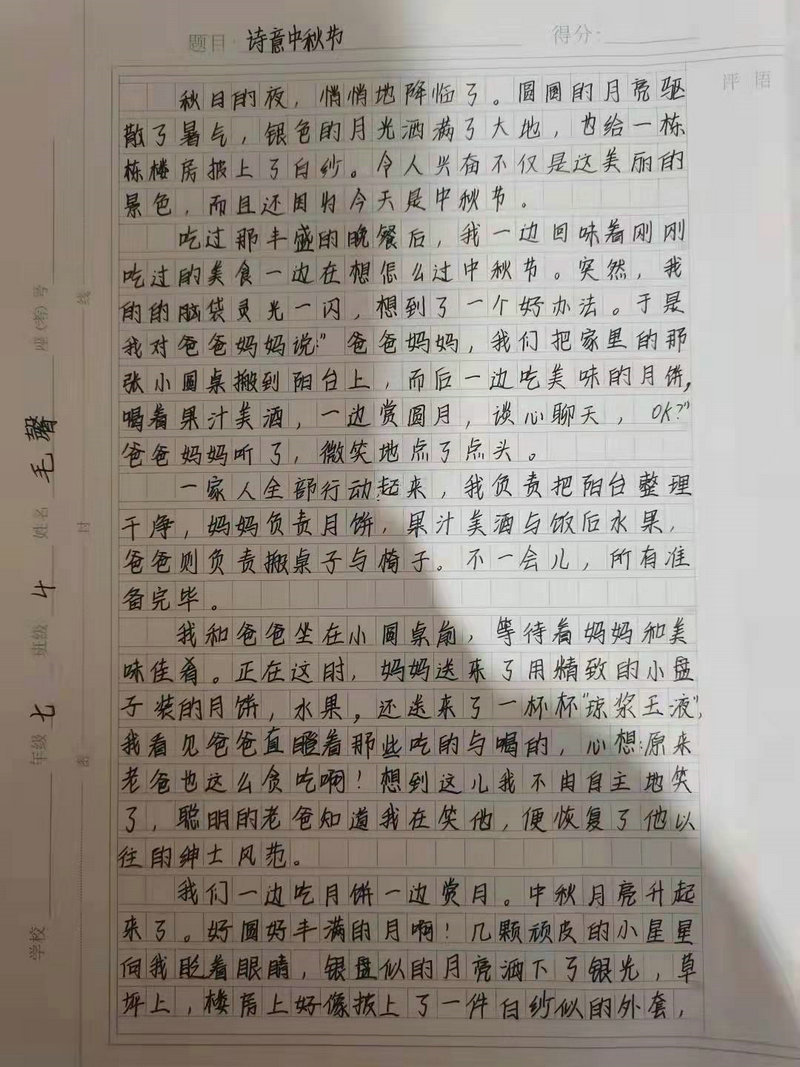 题目: 诗意中秋节 得分:
评语
秋日的夜，悄悄地降临了。圆圆的月亮驱
散了暑气，银色的月光洒满了大地，也给一栋
栋楼房披上了白纱。令人兴奋不仅是这美丽的
景色，而且还因为今天是中秋节。
吃过那丰盛的晚餐后，我一边回味着刚刚
吃过的美食一边在想怎么过中秋节。突然，我
的的脑袋灵光一闪，想到了一个好办法。于是
我对爸爸妈妈说:"爸爸妈妈，我们把家里的那
张小圆桌搬到阳台上，而后一边吃美味的月饼，
喝着果汁美酒，一边赏圆月，谈心聊天，OK?"
爸爸妈妈听了，微笑地点了点头。
一家人全部行动起来，我负责把阳台整理
干净，妈妈负责月饼，果汁美酒与饭后水果，
爸爸则负责搬桌子与椅子。不一会儿，所有准
备完毕。
我和爸爸坐在小圆桌前，等待着妈妈和美
味佳肴。正在这时，妈妈送来了用精致的小盘
子装的月饼，水果，还送来了一杯杯"琼浆玉液"，
我看见爸爸直瞪着那些吃的与喝的，心想:原来
老爸也这么贪吃啊！想到这儿我不由自主地笑
了，聪明的老爸知道我在笑他，便恢复了他以
往的绅士风范。
我们一边吃月饼一边赏月。中秋月亮升起
来了。好圆好丰满的月啊！几颗顽皮的小星星
向我眨着眼睛，银盘似的月亮洒下了银光，草
坪上，楼房上好像披上了一件白纱似的外套，
学校 年级 七 班级 4 姓名 毛馨 座(考)号
密 封 线